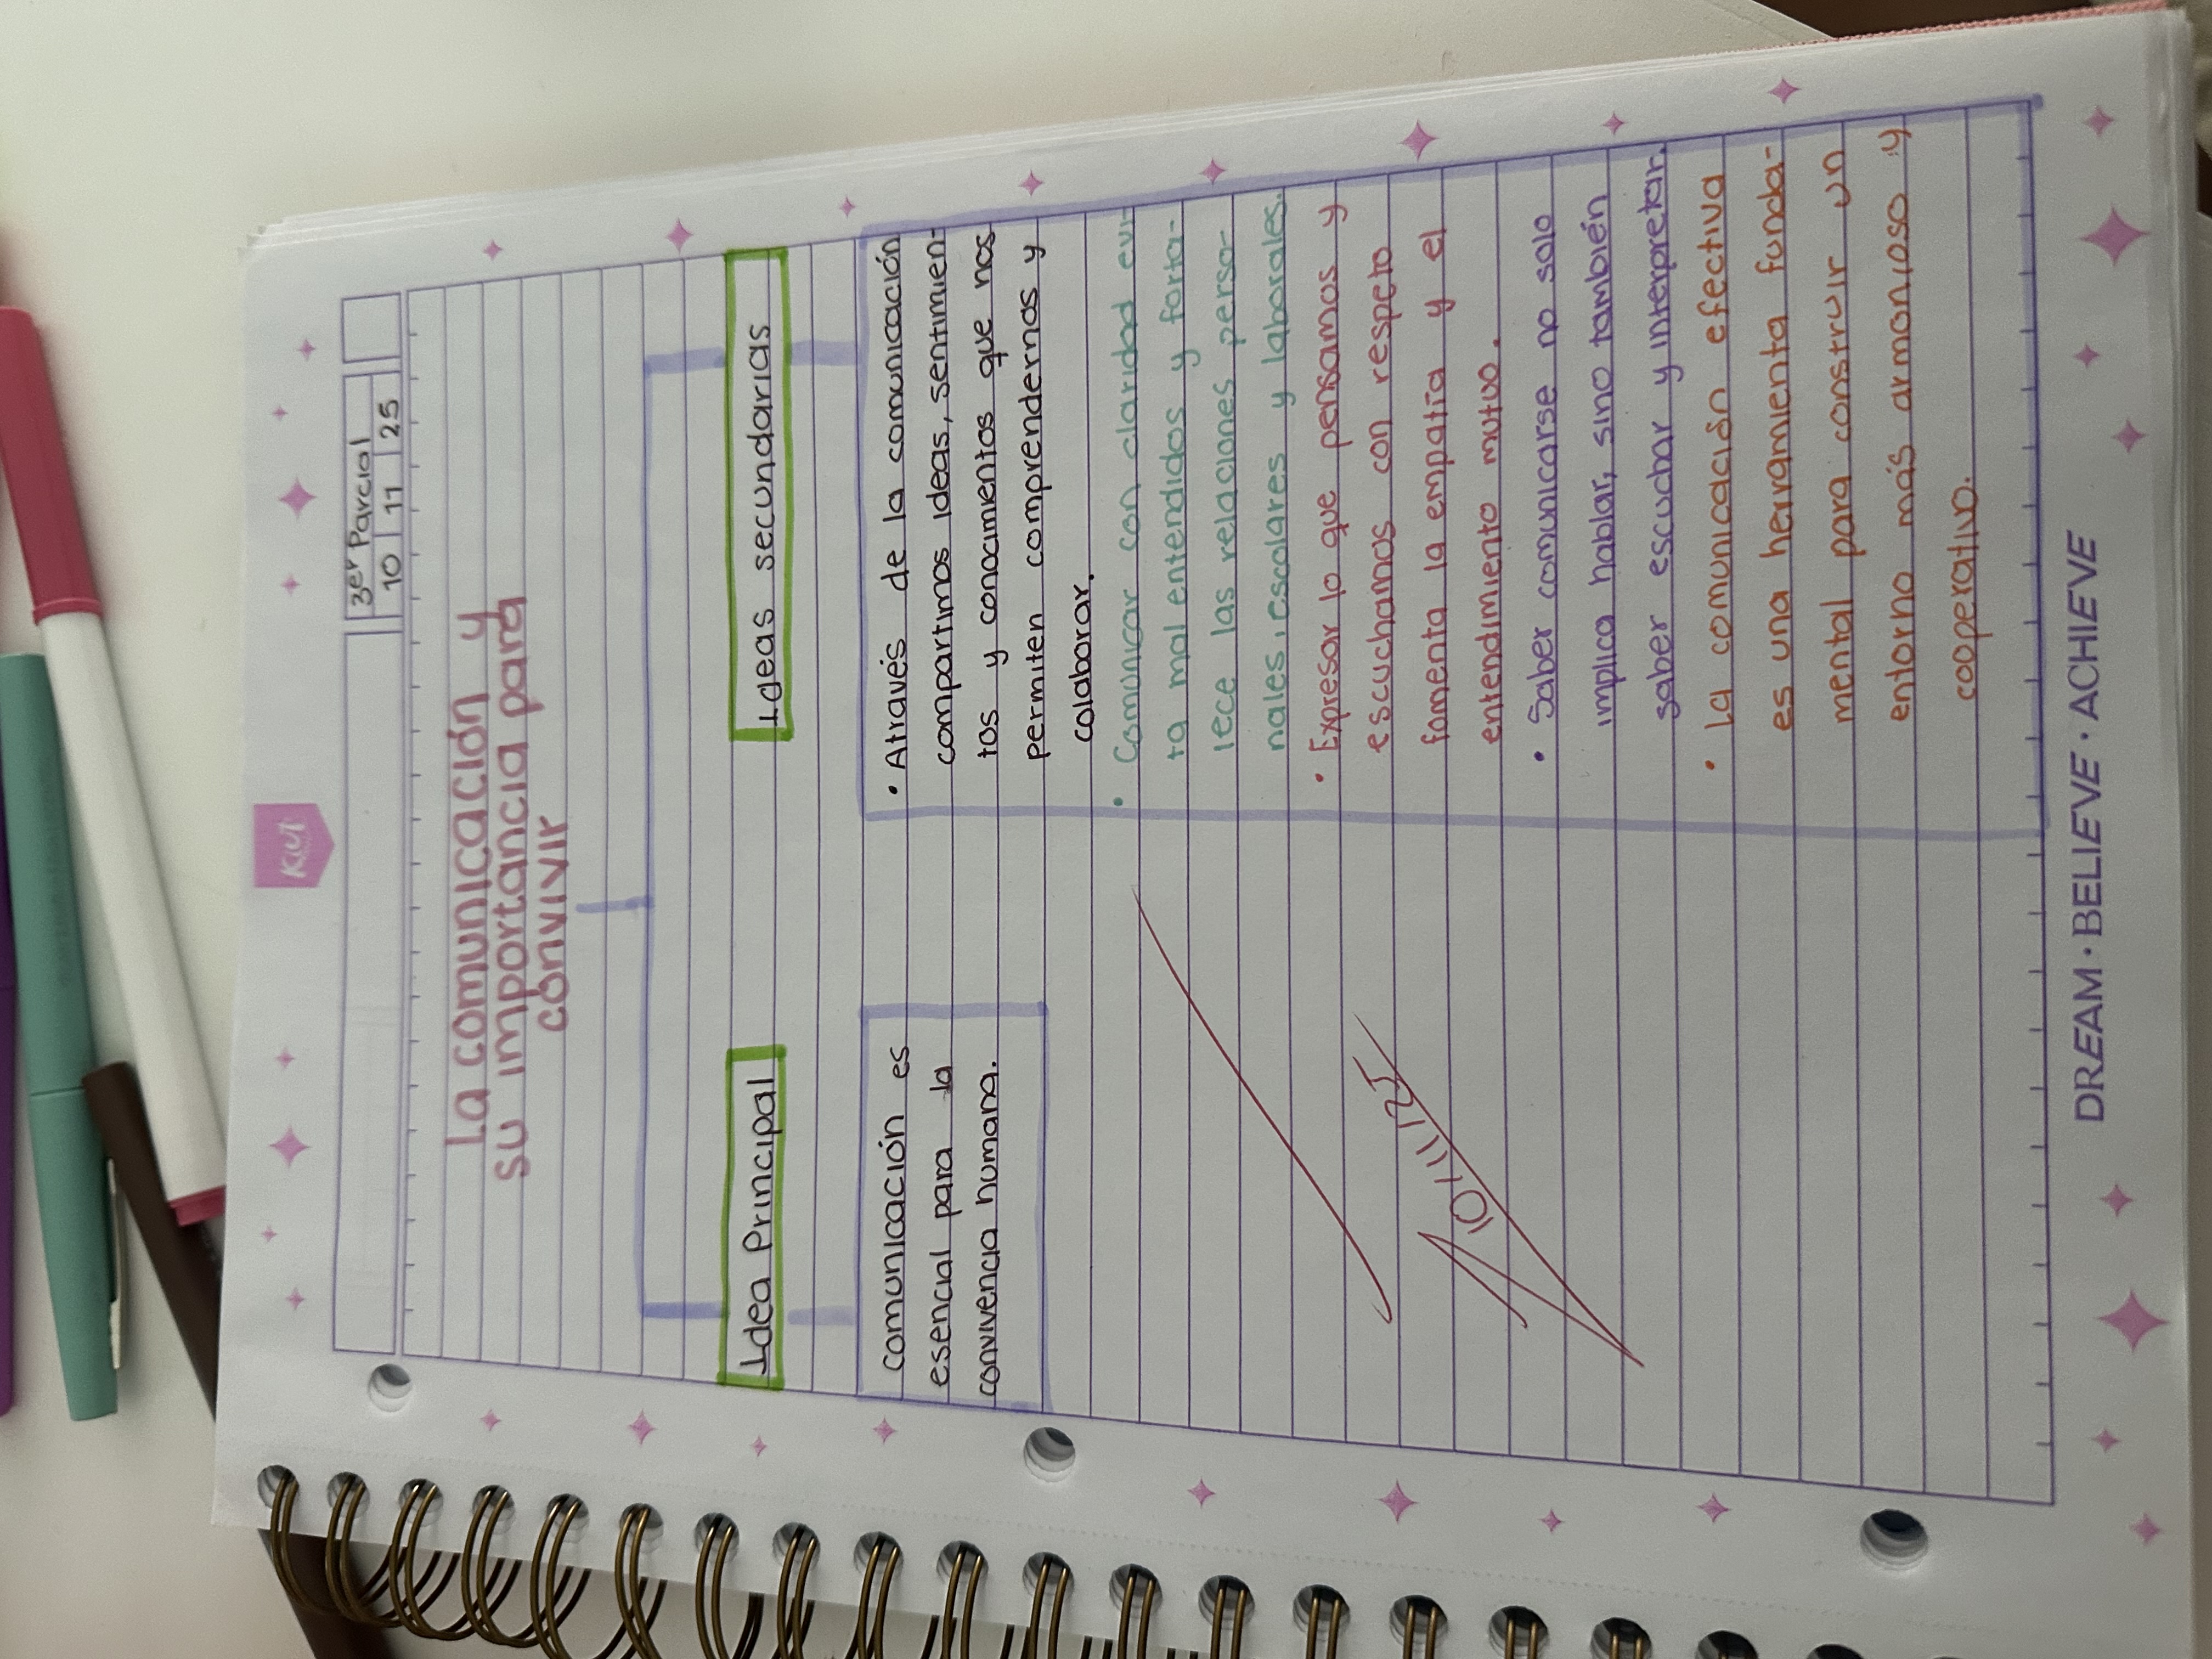 Kiut
3er Parcial
10 11 25
La comunicación y
su importancia para
convivir
Idea Principal
comunicación es
esencial para la
convivencia humana.
10/11/25
Ideas secundarias
• Através de la comunicación
compartimos ideas, sentimien-
tos y conocimientos que nos
permiten comprendernos y
colaborar.
• Comunicar con claridad evi-
ta mal entendidos y forta-
lece las relaciones perso-
nales, escolares y laborales.
• Expresar lo que pensamos y
escuchamos con respeto
fomenta la empatía y el
entendimiento mutuo.
• Saber comunicarse no solo
implica hablar, sino también
saber escuchar y interpretar.
• la comunicación efectiva
es una herramienta funda-
mental para construir un
entorno más armonioso y
cooperativo.
DREAM · BELIEVE · ACHIEVE